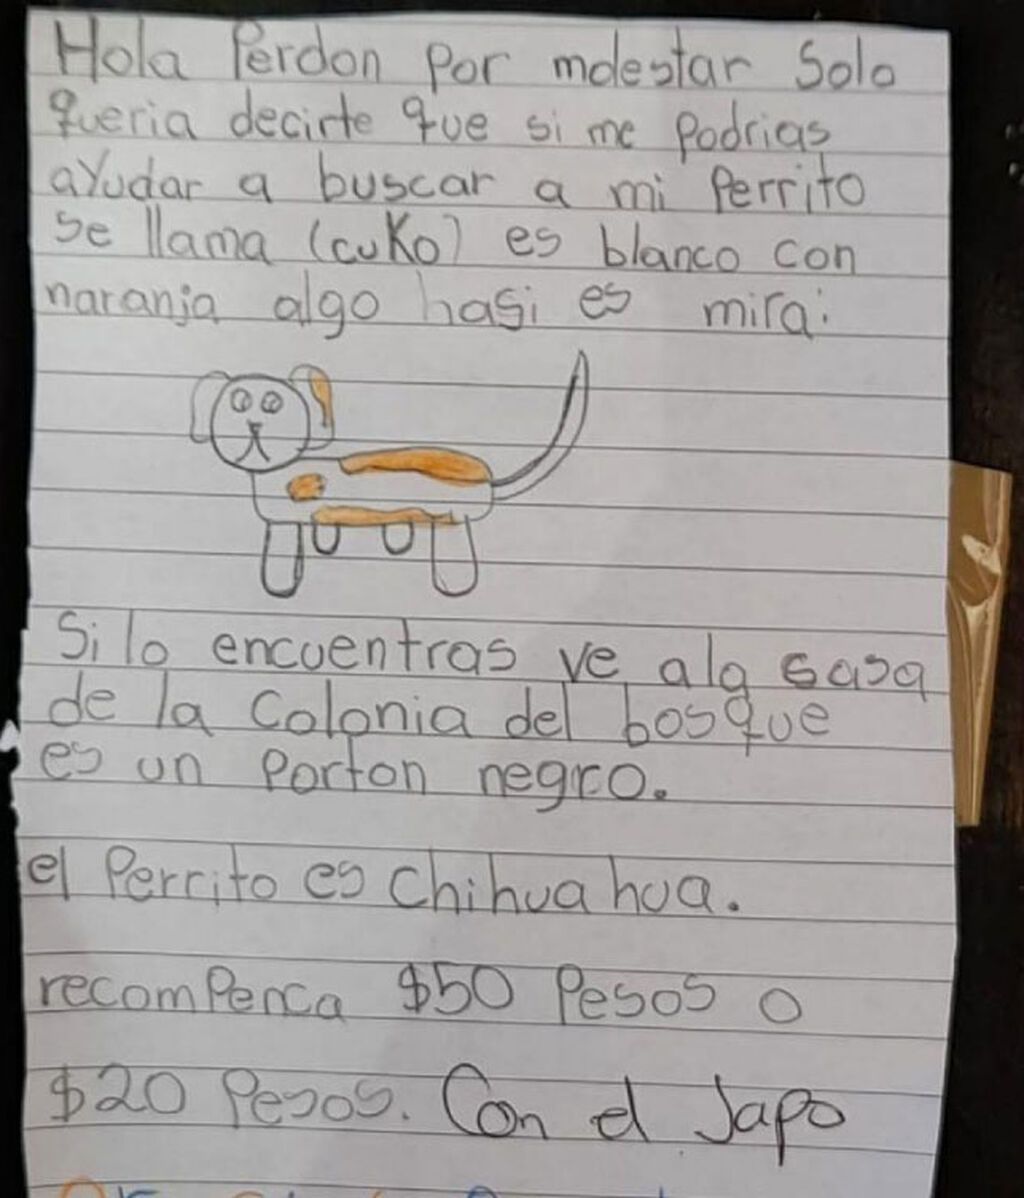 Hola Perdon por molestar Solo
queria decirte que si me Podrias
ayudar a buscar a mi Perrito
se llama (cuKo) es blanco con
naranja algo hasi es mira:
Si lo encuentras ve ala casa
de la Colonia del bosque
es un Porton negro.
el Perrito es Chihua hua.
recomPenca $50 Pesos o
$20 Pesos. Con el Japo